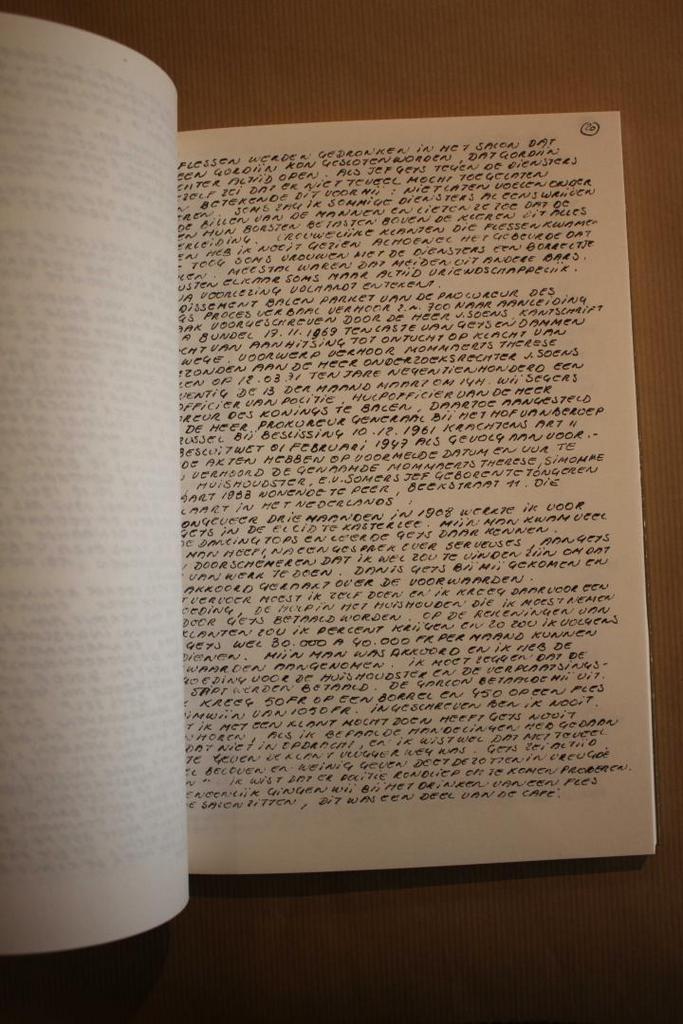 20
FLESSEN WERDEN GEDRONKEN IN HET SALON DAT
EEN GORDIJN KON GESLOTEN WORDEN, DAT GORDIJN
ALTIJD OPEN. ALS JEF GEYS TEGEN DE DIENSTERS
ZELF ZEI DAT ER NIET TEVEEL MOCHT TOEGELATEN
BETEKENDE DIT VOOR MIJ: NIET LATEN VOELEN ONDER
SOMS ZAG IK SOMMIGE DIENSTERS AL EENS WRIJVEN
DE BILLEN VAN DE MANNEN EN LIETEN ZE ZEE DAT DE
HUN BORSTEN BETASTEN BOVEN DE KLEREN DIT ALLES
VROUWELIJKE KLANTEN DIE FLESSEN KWAMEN
HEB IK NOOIT GEZIEN ALHOEWEL HET GEBEURDE DAT
TOOG SOMS VROUWEN MET DE DIENSTERS EEN BORRELTJE
MEESTAL WAREN DAT MEIDEN UIT ANDERE BARS.
ELKAAR SOMS MAAR ALTIJD VRIENDSCHAPPELIJK.
NA VOORLEZING VOLHARDT EN TEKENT.
DISSEMENT BALEN PARKET VAN DE PROCUREUR DES
PROCES VERBAAL VERHOOR 2. N. 700 NAAR AANLEIDING
VOORGESCHREVEN DOOR DE HEER J. SOENS. KANTSCHRIFT
BUNDEL 17.11.1969 TEN LASTE VAN GEYS EN DAMMEN
VAN AANHITSING TOT ONTUCHT OP KLACHT VAN
WEGE. VOORWERP VERHOOR MOMMAERTS THERESE
ZONDEN AAN DE HEER ONDERZOEKSRECHTER J. SOENS
OP 12.03.71 TEN JARE NEGENTIENHONDERD EEN
ENTIG DE 13 DER MAAND MAART OM 14H. WIJ SEGERS
OFFICIER VAN POLITIE, HULPOFFICIER VAN DE HEER
REUR DES KONINGS TE BALEN, DAARTOE AANGESTELD
DE HEER PROKUREUR GENERAAL BIJ HET HOF VAN BEROEP
BIJ BESLISSING 10.12.1961 KRACHTENS ART 11
BESLUITWET 01 FEBRUARI 1947 ALS GEVOLG AAN VOOR.-
DE AKTEN HEBBEN OP VOORMELDE DATUM EN UUR TE
VERHOORD DE GENAAMDE MOMMAERTS THERESE, SIMONNE
HUISHOUDSTER, E.V. SOMERS JEF GEBOREN TE TONGEREN
1938 WONENDE TE PEER, BEEKSTRAAT 11. DIE
LAART IN HET NEDERLANDS:
ONGEVEER DRIE MAANDEN IN 1968 WERKTE IK VOOR
GEYS IN DE EL CID TE KASTERLEE. MIJN MAN KWAM VEEL
DE DANCING TOPS EN LEERDE GEYS DAAR KENNEN.
MAN HEEFT, NA EEN GESPREK OVER SERVEUSES, AAN GEYS
DOORSCHEMEREN DAT IK WEL ZOU TE VINDEN ZIJN OM DAT
VAN WERK TE DOEN. DAN IS GEYS BIJ MIJ GEKOMEN EN
AKKOORD GERAAKT OVER DE VOORWAARDEN.
VERVOER MOEST IK ZELF DOEN EN IK KREEG DAARVOOR EEN
OEDING, DE HULP IN HET HUISHOUDEN DIE IK MOEST NEMEN
DOOR GEYS BETAALD WORDEN. OP DE REKENINGEN VAN
KLANTEN ZOU IK PERCENT KRIJGEN EN ZO ZOU IK VOLGENS
GEYS WEL 30.000 A 40.000 FR PER MAAND KUNNEN
DIENEN. MIJN MAN WAS AKKOORD EN IK HEB DE
WAARDEN AANGENOMEN. IK MOET ZEGGEN DAT DE
OEDING VOOR DE HUISHOUDSTER EN DE VERPLAATSINGS-
STIPT WERDEN BETAALD. DE GARCON BETAALDE MIJ UIT.
KREEG 50 FR OP EEN BORREL EN 450 OP EEN FLES
IMWIJN VAN 1050 FR. INGESCHREVEN BEN IK NOOIT.
IK MET EEN KLANT MOCHT DOEN HEEFT GEYS NOOIT
ALS IK BEPAALDE HANDELINGEN HEB GEDAAN
DAT NIET IN OPDRACHT, EN IK WIST WEL DAT MET TEVEEL
TE GEVEN DE KLANT VLUGGER WEG WAS. GEYS ZEI ALTIJD
BELOVEN EN WEINIG GEVEN DOET DE ZOTTEN IN VREUGDE
" IK WIST DAT ER POLITIE RONDLIEP OM TE KOMEN PROBEREN.
GINGEN WIJ BIJ HET DRINKEN VAN EEN FLES
SALON ZITTEN, DIT WAS EEN DEEL VAN DE CAFE.